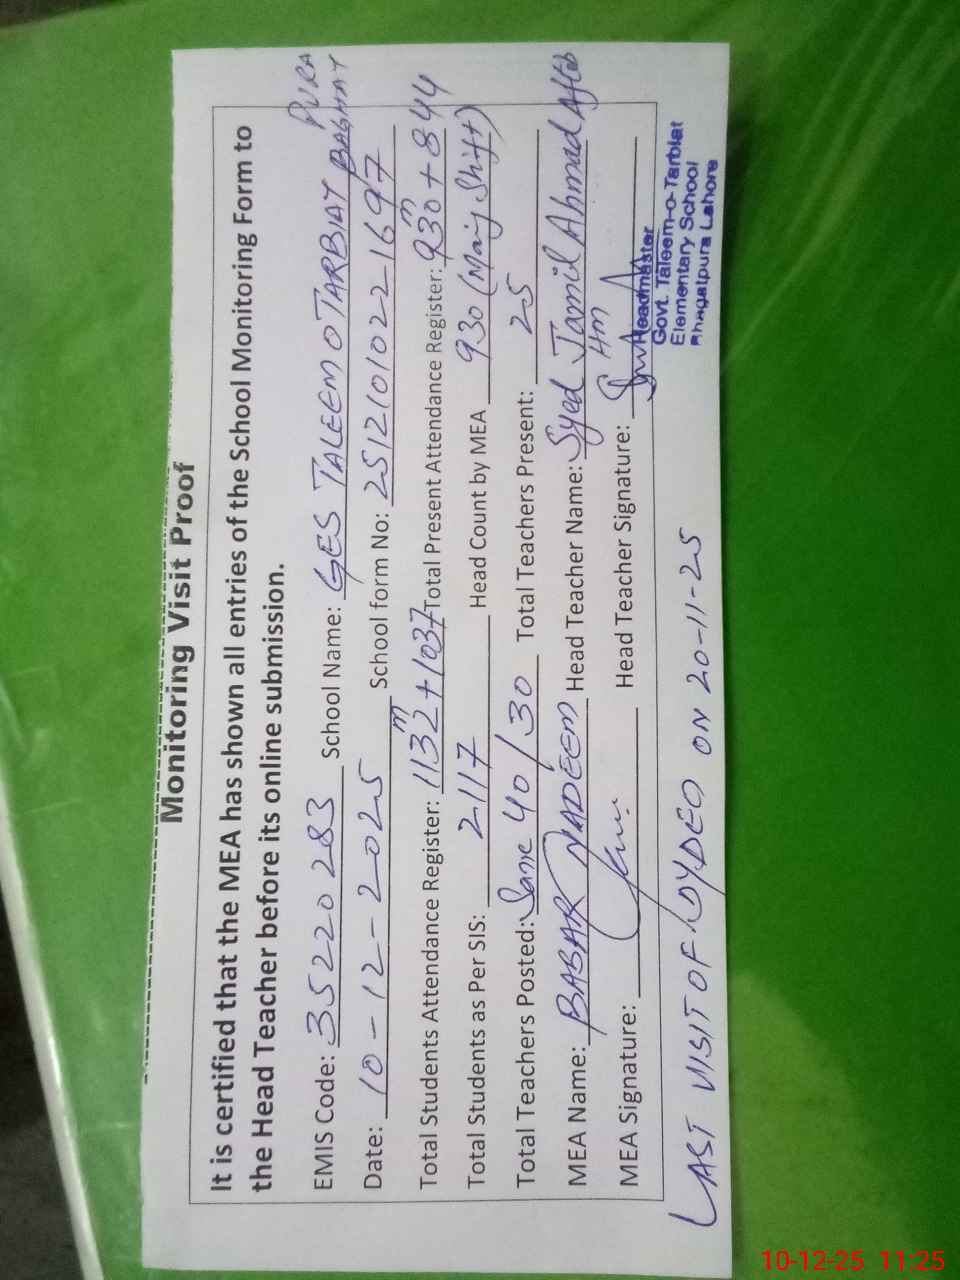 Monitoring Visit Proof
It is certified that the MEA has shown all entries of the School Monitoring Form to
the Head Teacher before its online submission.
PURA
EMIS Code: 35220283 School Name: GES TALEEM O TARBIAT BAGHAT
Date: 10-12-2025 School form No: 25121010221697
Total Students Attendance Register: 1132 + 1037 Total Present Attendance Register: 930 + 844
Total Students as Per SIS: 2117 Head Count by MEA 930 (Mng Shift)
Total Teachers Posted: Sanc 40 / 30 Total Teachers Present: 25
MEA Name: BABAR NADEEM Head Teacher Name: Syed Jamil Ahmad Aftab
HM
MEA Signature: Head Teacher Signature:
Headmaster
Govt. Taleem-o-Tarbiat
Elementary School
Bhagatpura Lahore
LAST VISIT OF DYDEO ON 20-11-25
10-12-25 11:25